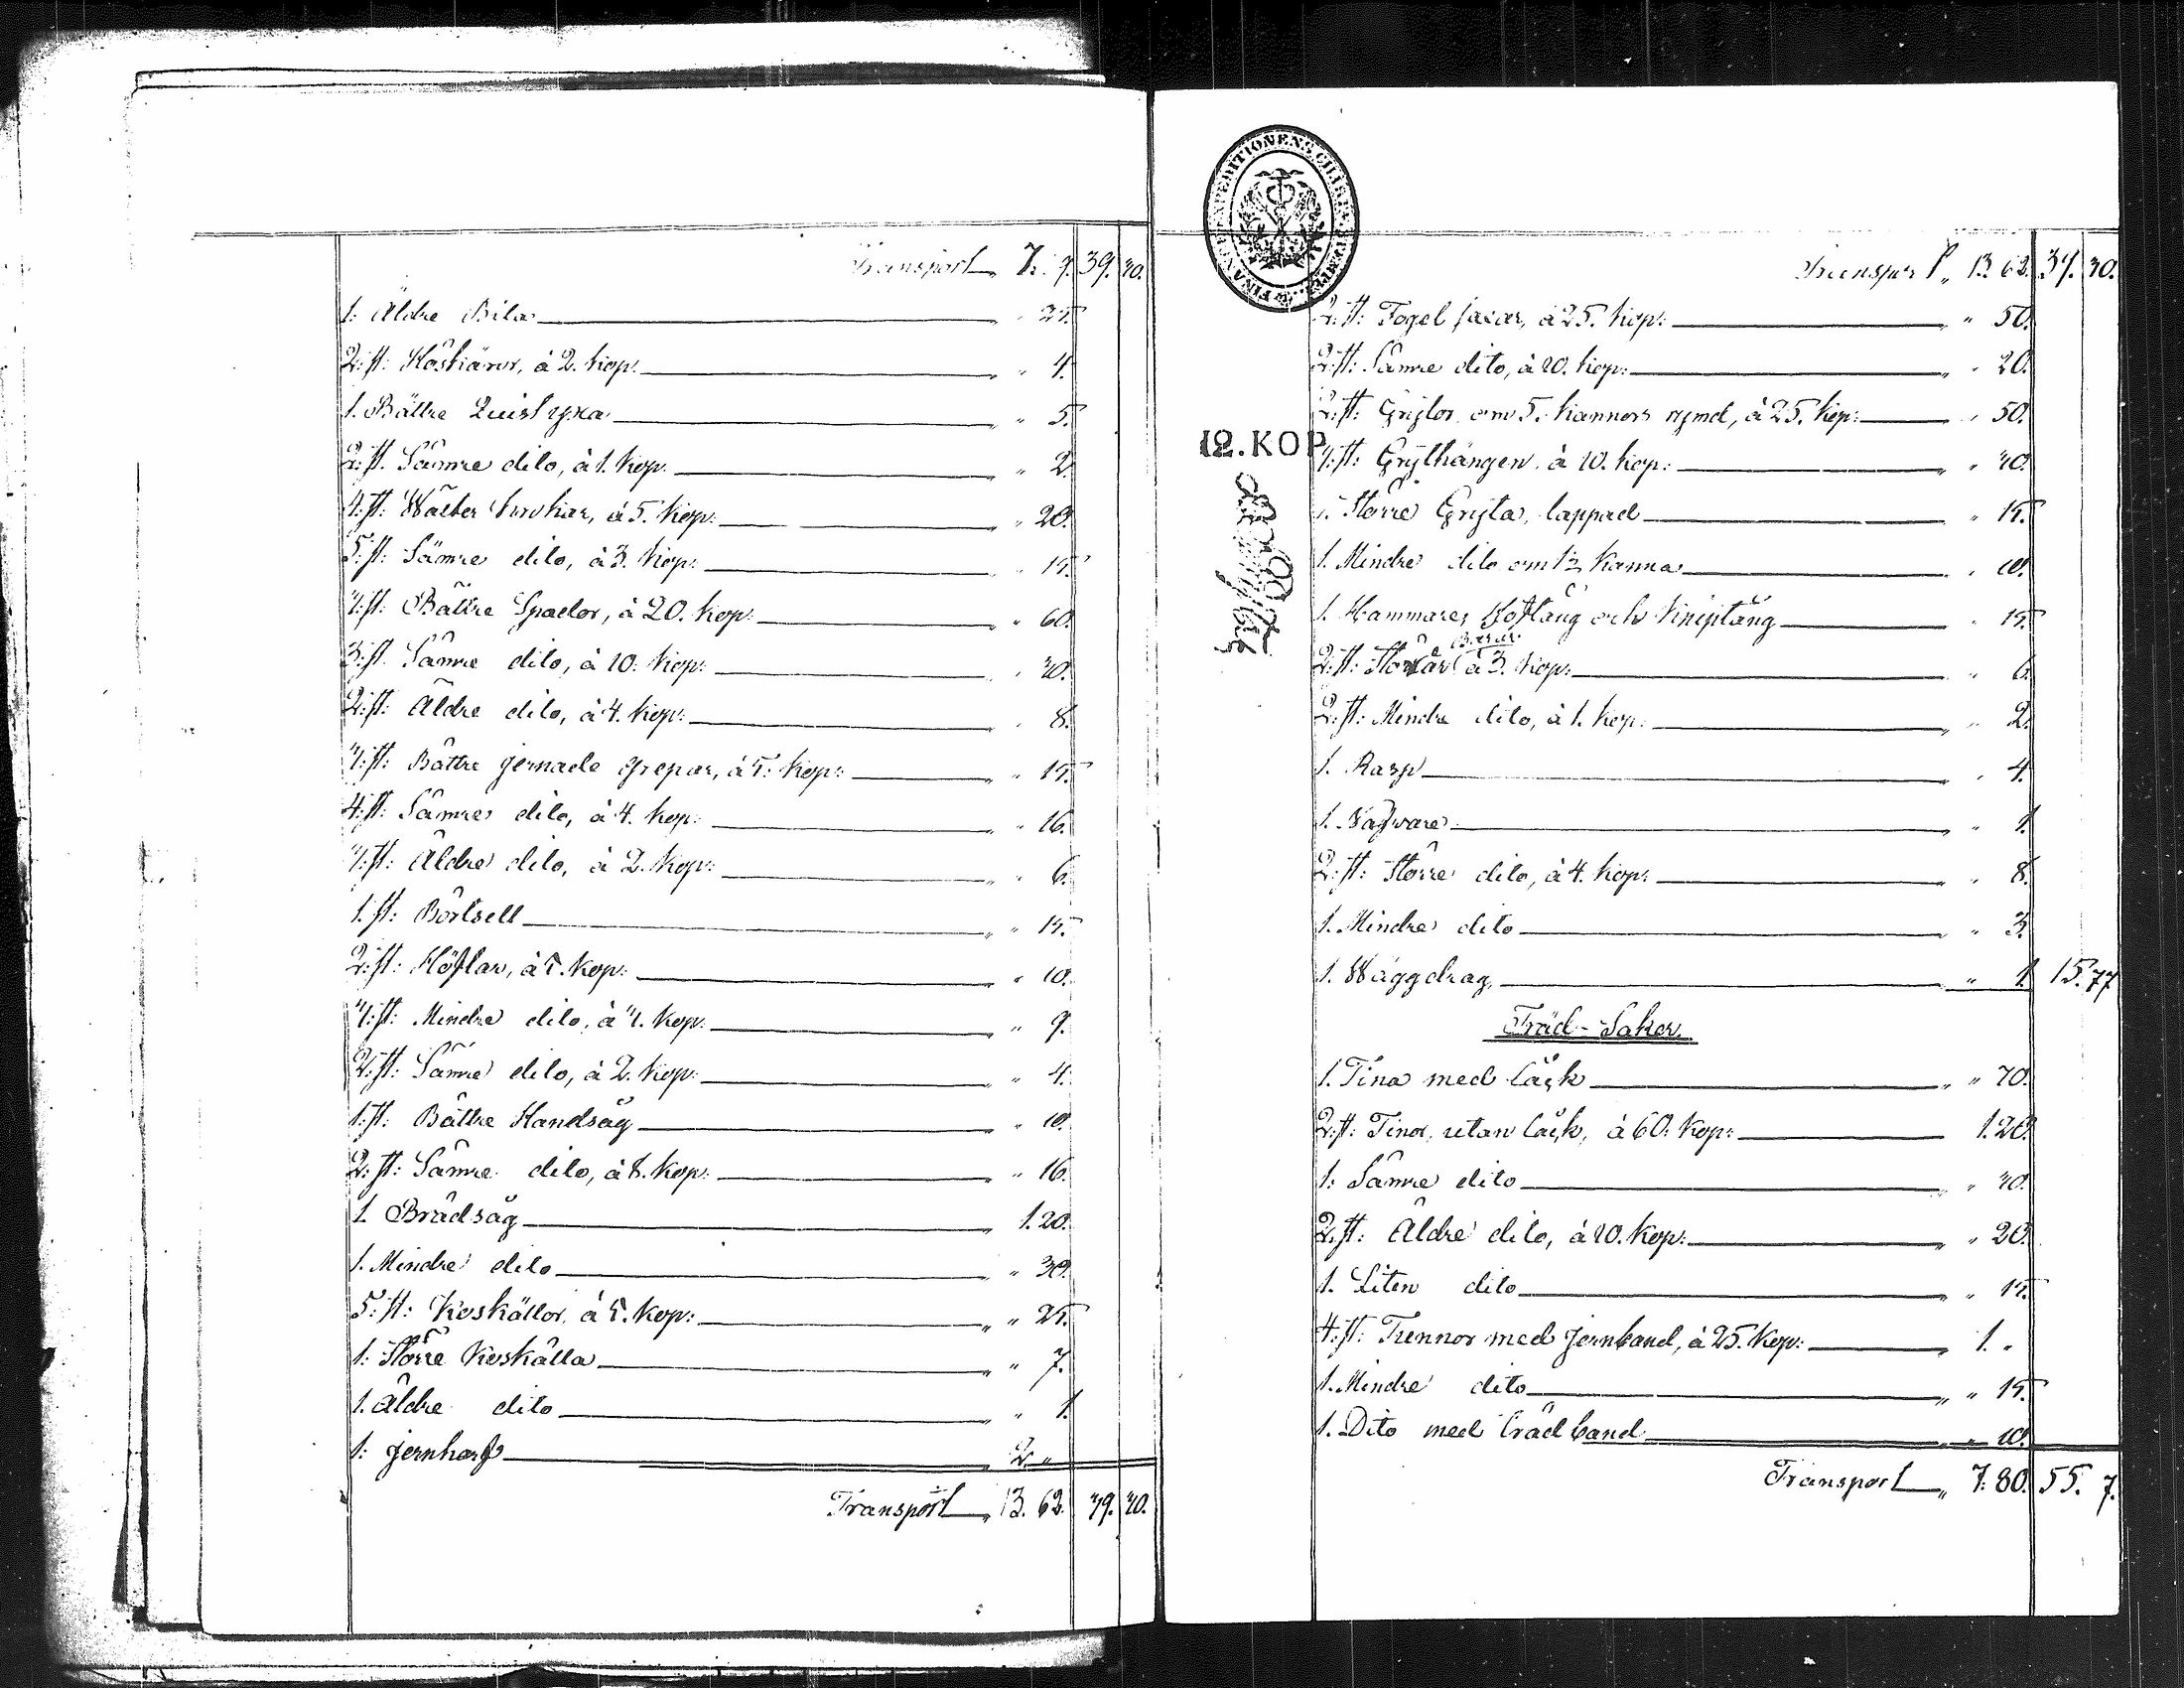 Transport „ 7. 9. 39. 30.
1: Äldre Bila „ 25.
2: st: Höskäror, à 2. kop: „ 4.
1. Bättre Quistyxa „ 5.
2: st. Sämre dito, à 1. kop. „ 2.
4: st: à 5. kop: „ 20.
5: st: Sämre dito, à 3. kop: „ 15.
3: st: Bättre Spador, à 20. kop: „ 60.
3: st. Sämre dito, à 10: kop: „ 30.
2: st: Äldre dito, à 4. kop: „ 8.
3: st: Bättre jernade grepar, à 5: kop: „ 15.
4: st: Sämre dito, à 4. kop: „ 16.
3: st: Äldre dito, à 2. kop: „ 6.
1. st: „ 15.
2: st: Höflar, à 5. kop: „ 10.
3: st: Mindre dito, à 3. kop: „ 9.
2: st: Sämre dito, à 2. kop: „ 4.
1: st: Bättre Handsåg „ 10.
2: st: Sämre dito, à 8. kop: „ 16.
1. Brädsåg 1. 20.
1. Mindre dito „ 30.
5: st: Koskällor, à 5. kop: „ 25.
1: Större Koskälla „ 7.
1. Äldre dito „ 1.
1: Jernharf 2. „
Transport „ 13. 62. 39. 30.
FINANCE EXPEDITIONENS
12. KOP
Transport „ 13. 62. 39. 30.
2: st: Fogel saxar, à 25. kop: „ 50.
2: st: Sämre dito, à 10. kop: „ 20.
2: st: Grytor om 5. kannors rymd, à 25. kop: „ 50.
3: st: Grythängen à 10. kop: „ 30.
1. Större Gryta, lappad „ 15.
1. Mindre dito om 1½ kanna „ 10.
1. Hammare, Hoftång och Kniptång „ 15.
2: st: Större Borar à 3. kop: „ 6.
2: st: Mindre dito, à 1. kop: „ 2.
1. Rasp „ 4.
1. Nafware „ 1.
2: st: Större dito, à 4. kop: „ 8.
1. Mindre dito „ 3.
1. Wäggdrag „ 1. 15. 77
Träd-Saker.
1. Tina med låck „ 70.
2: st: Tinor utan låck, à 60. kop: 1. 20.
1: Sämre dito „ 30.
2. st: Äldre dito, à 10. kop: „ 20.
1. Liten dito „ 15.
4: st: Tunnor med jernband, à 25. kop: 1. „
1. Mindre dito „ 15.
1. Dito med trädband „ 10.
Transport „ 3. 80. 55. 7.